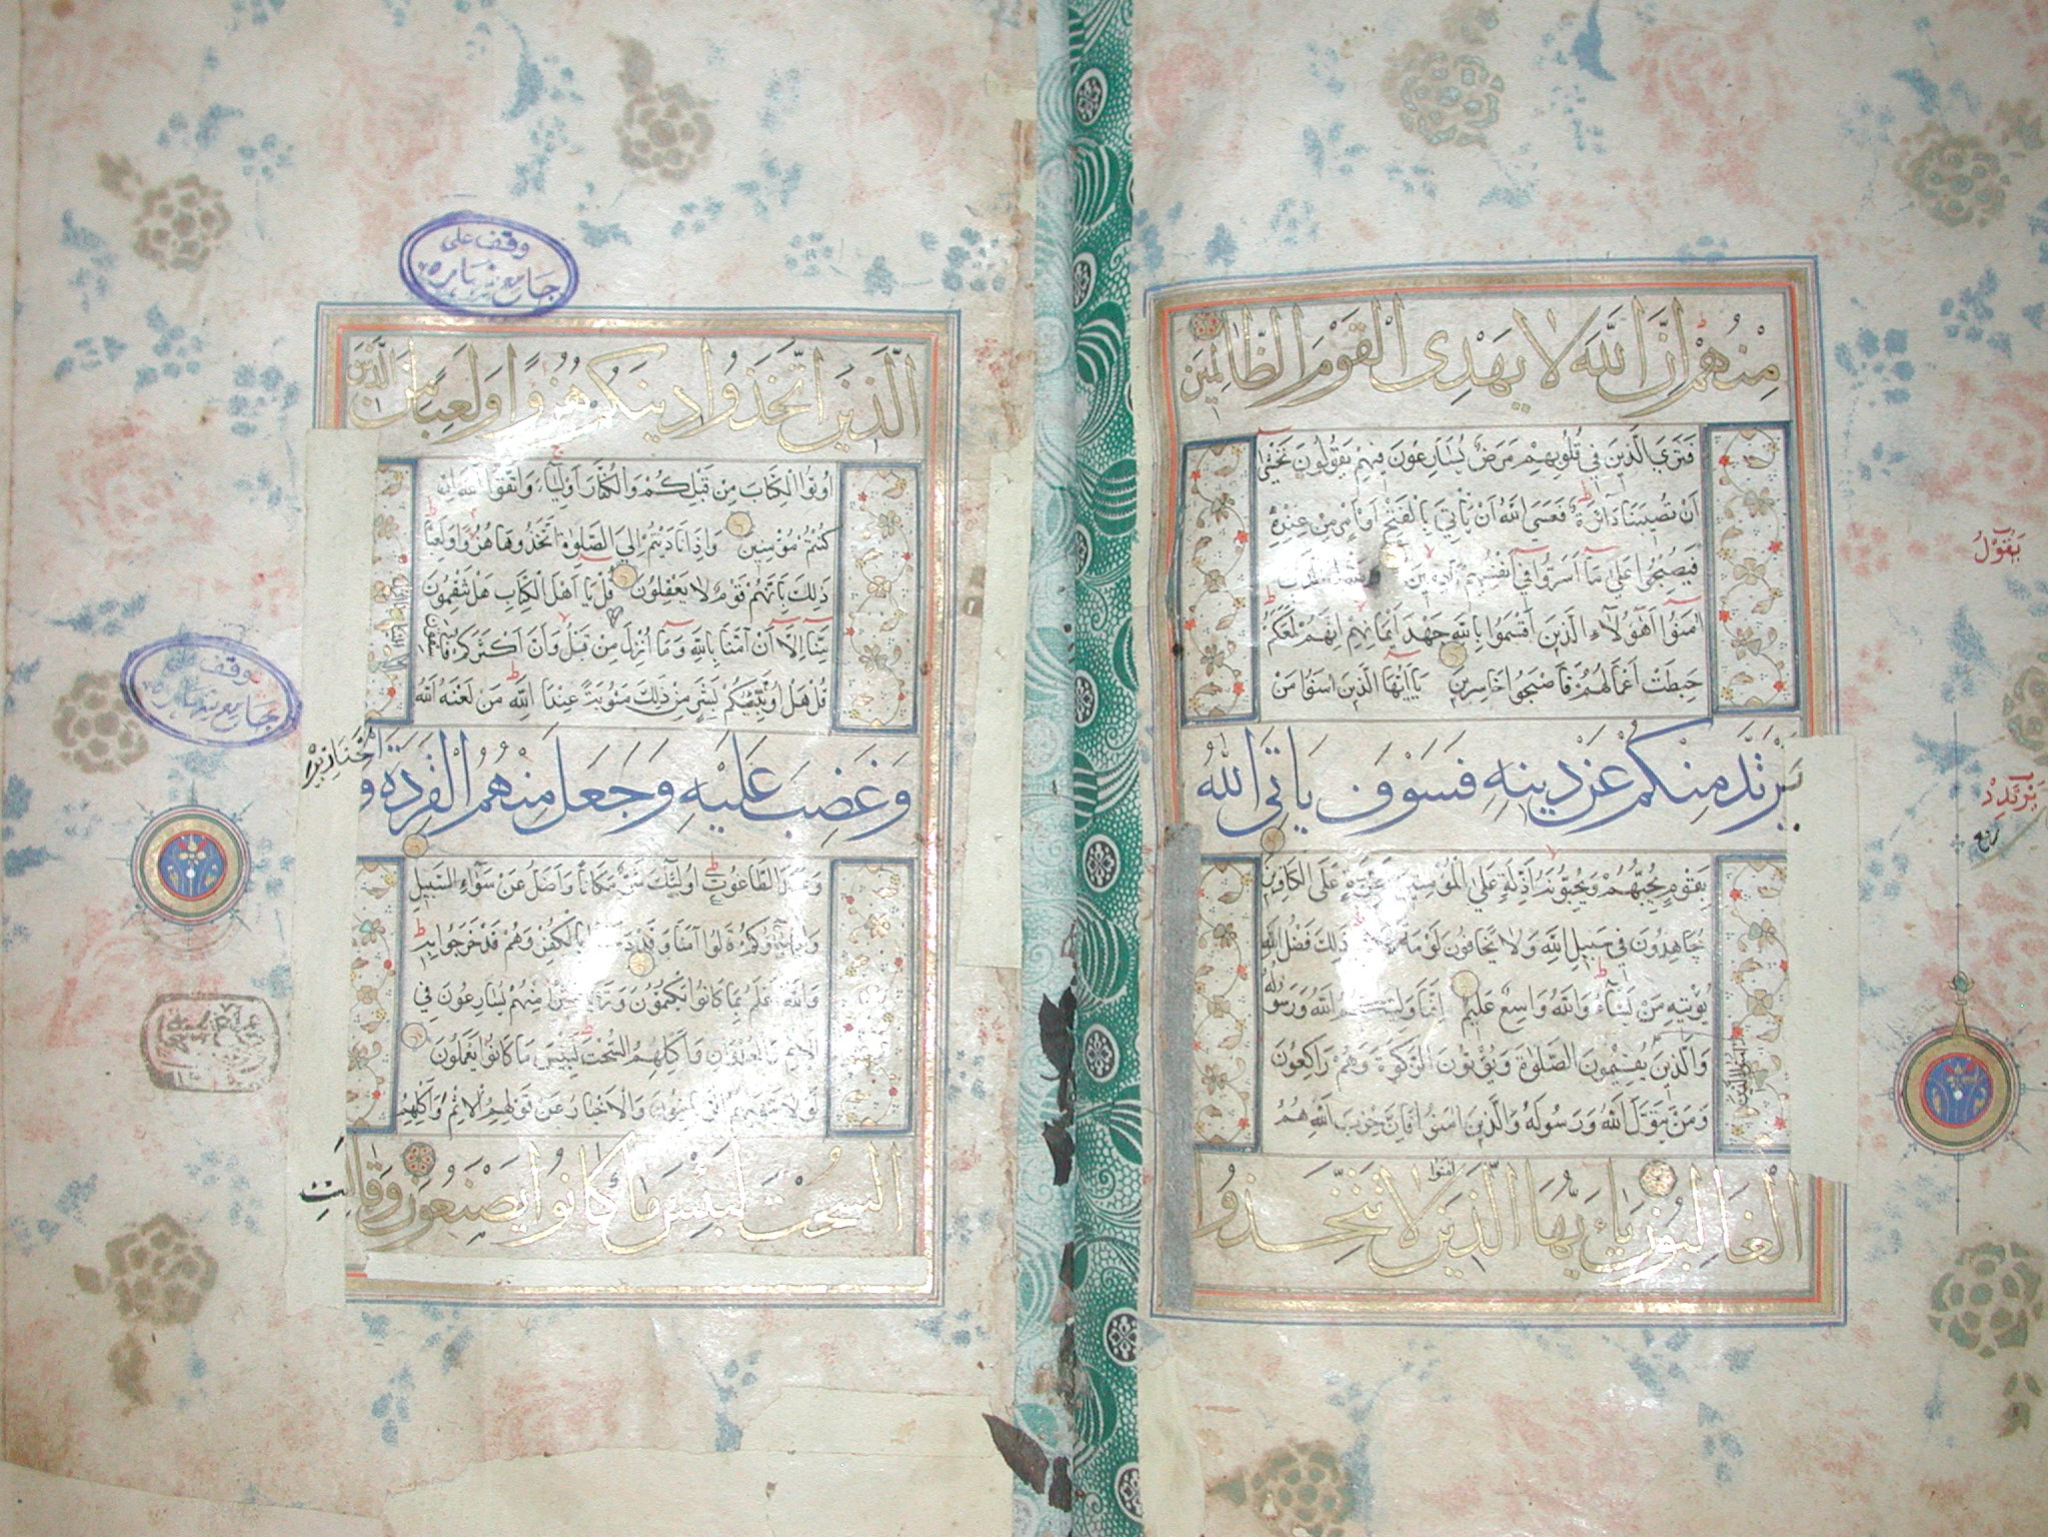 مِنْهُمْ إِنَّ اللَّهَ لَا يَهْدِي الْقَوْمَ الظَّالِمِينَ
فَتَرَى الَّذِينَ فِي قُلُوبِهِمْ مَرَضٌ يُسَارِعُونَ فِيهِمْ يَقُولُونَ نَخْشَى
أَنْ تُصِيبَنَا دَائِرَةٌ فَعَسَى اللَّهُ أَنْ يَأْتِيَ بِالْفَتْحِ أَوْ أَمْرٍ مِنْ عِنْدِهِ
فَيُصْبِحُوا عَلَى مَا أَسَرُّوا فِي أَنْفُسِهِمْ نَادِمِينَ
آمَنُوا أَهَؤُلَاءِ الَّذِينَ أَقْسَمُوا بِاللَّهِ جَهْدَ أَيْمَانِهِمْ إِنَّهُمْ لَمَعَكُمْ
حَبِطَتْ أَعْمَالُهُمْ فَأَصْبَحُوا خَاسِرِينَ يَا أَيُّهَا الَّذِينَ آمَنُوا مَنْ
يَرْتَدَّ مِنْكُمْ عَنْ دِينِهِ فَسَوْفَ يَأْتِي اللَّهُ
بِقَوْمٍ يُحِبُّهُمْ وَيُحِبُّونَهُ أَذِلَّةٍ عَلَى الْمُؤْمِنِينَ أَعِزَّةٍ عَلَى الْكَافِرِينَ
يُجَاهِدُونَ فِي سَبِيلِ اللَّهِ وَلَا يَخَافُونَ لَوْمَةَ ذَلِكَ فَضْلُ اللَّهِ
يُؤْتِيهِ مَنْ يَشَاءُ وَاللَّهُ وَاسِعٌ عَلِيمٌ إِنَّمَا وَلِيُّكُمُ اللَّهُ وَرَسُولُهُ
وَالَّذِينَ يُقِيمُونَ الصَّلَاةَ وَيُؤْتُونَ الزَّكَوةَ وَهُمْ رَاكِعُونَ
وَمَنْ يَتَوَلَّ اللَّهَ وَرَسُولَهُ وَالَّذِينَ آمَنُوا فَإِنَّ حِزْبَ اللَّهِ هُمُ
الْغَالِبُونَ يَا أَيُّهَا الَّذِينَ آمَنُوا لَا تَتَّخِذُوا
يَقُولُ
يَرْتَدِدْ
الَّذِينَ اتَّخَذُوا دِينَكُمْ هُزُوًا وَلَعِبًا مِنَ الَّذِينَ
أُوتُوا الْكِتَابَ مِنْ قَبْلِكُمْ وَالْكُفَّارَ أَوْلِيَاءَ وَاتَّقُوا اللَّهَ إِنْ
كُنْتُمْ مُؤْمِنِينَ وَإِذَا نَادَيْتُمْ إِلَى الصَّلَوةِ اتَّخَذُوهَا هُزُوًا وَلَعِبًا
ذَلِكَ بِأَنَّهُمْ قَوْمٌ لَا يَعْقِلُونَ قُلْ يَا أَهْلَ الْكِتَابِ هَلْ تَنْقِمُونَ
مِنَّا إِلَّا أَنْ آمَنَّا بِاللَّهِ وَمَا أُنْزِلَ مِنْ قَبْلُ وَأَنَّ أَكْثَرَكُمْ فَاسِقُونَ
قُلْ هَلْ أُنَبِّئُكُمْ بِشَرٍّ مِنْ ذَلِكَ مَثُوبَةً عِنْدَ اللَّهِ مَنْ لَعَنَهُ اللَّهُ
وَغَضِبَ عَلَيْهِ وَجَعَلَ مِنْهُمُ الْقِرَدَةَ وَالْخَنَازِيرَ
وَعَبَدَ الطَّاغُوتَ أُولَئِكَ شَرٌّ مَكَانًا وَأَضَلُّ عَنْ سَوَاءِ السَّبِيلِ
وَإِذَا جَاؤُوكُمْ قَالُوا آمَنَّا وَقَدْ دَخَلُوا بِالْكُفْرِ وَهُمْ قَدْ خَرَجُوا بِهِ
وَاللَّهُ أَعْلَمُ بِمَا كَانُوا يَكْتُمُونَ وَتَرَى كَثِيرًا مِنْهُمْ يُسَارِعُونَ فِي
الْإِثْمِ وَالْعُدْوَانِ وَأَكْلِهِمُ السُّحْتَ لَبِئْسَ مَا كَانُوا يَعْمَلُونَ
لَوْلَا يَنْهَاهُمُ الرَّبَّانِيُّونَ وَالْأَحْبَارُ عَنْ قَوْلِهِمُ الْإِثْمَ وَأَكْلِهِمُ
السُّحْتَ لَبِئْسَ مَا كَانُوا يَصْنَعُونَ وَقَالَتِ
وقف على
جامع
وقف على
جامع